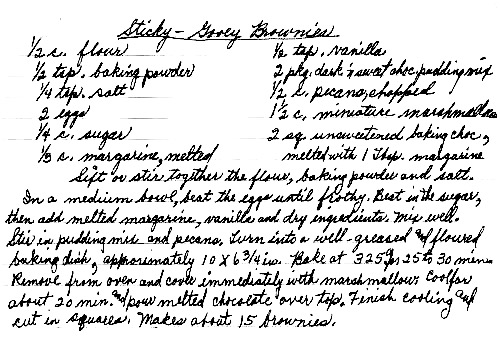 Sticky-Gooey Brownies
1/2 c. flour
1/2 tsp. baking powder
1/4 tsp. salt
2 eggs
1/4 c. sugar
1/3 c. margarine, melted
1/2 tsp. vanilla
2 pkg. dark 'n sweet choc. pudding mix
1/2 c. pecans, chopped
1 1/2 c. miniature marshmallows
2 sq. unsweetened baking choc.,
melted with 1 Tbsp. margarine
Sift or stir together the flour, baking powder and salt.
In a medium bowl, beat the eggs until frothy. Beat in the sugar,
then add melted margarine, vanilla and dry ingredients. Mix well.
Stir in pudding mix and pecans. Turn into a well-greased and floured
baking dish, approximately 10 x 6 3/4 in. Bake at 325° for 25 to 30 min.
Remove from oven and cover immediately with marshmallows. Cool for
about 20 min. and pour melted chocolate over top. Finish cooling and
cut in squares. Makes about 15 brownies.